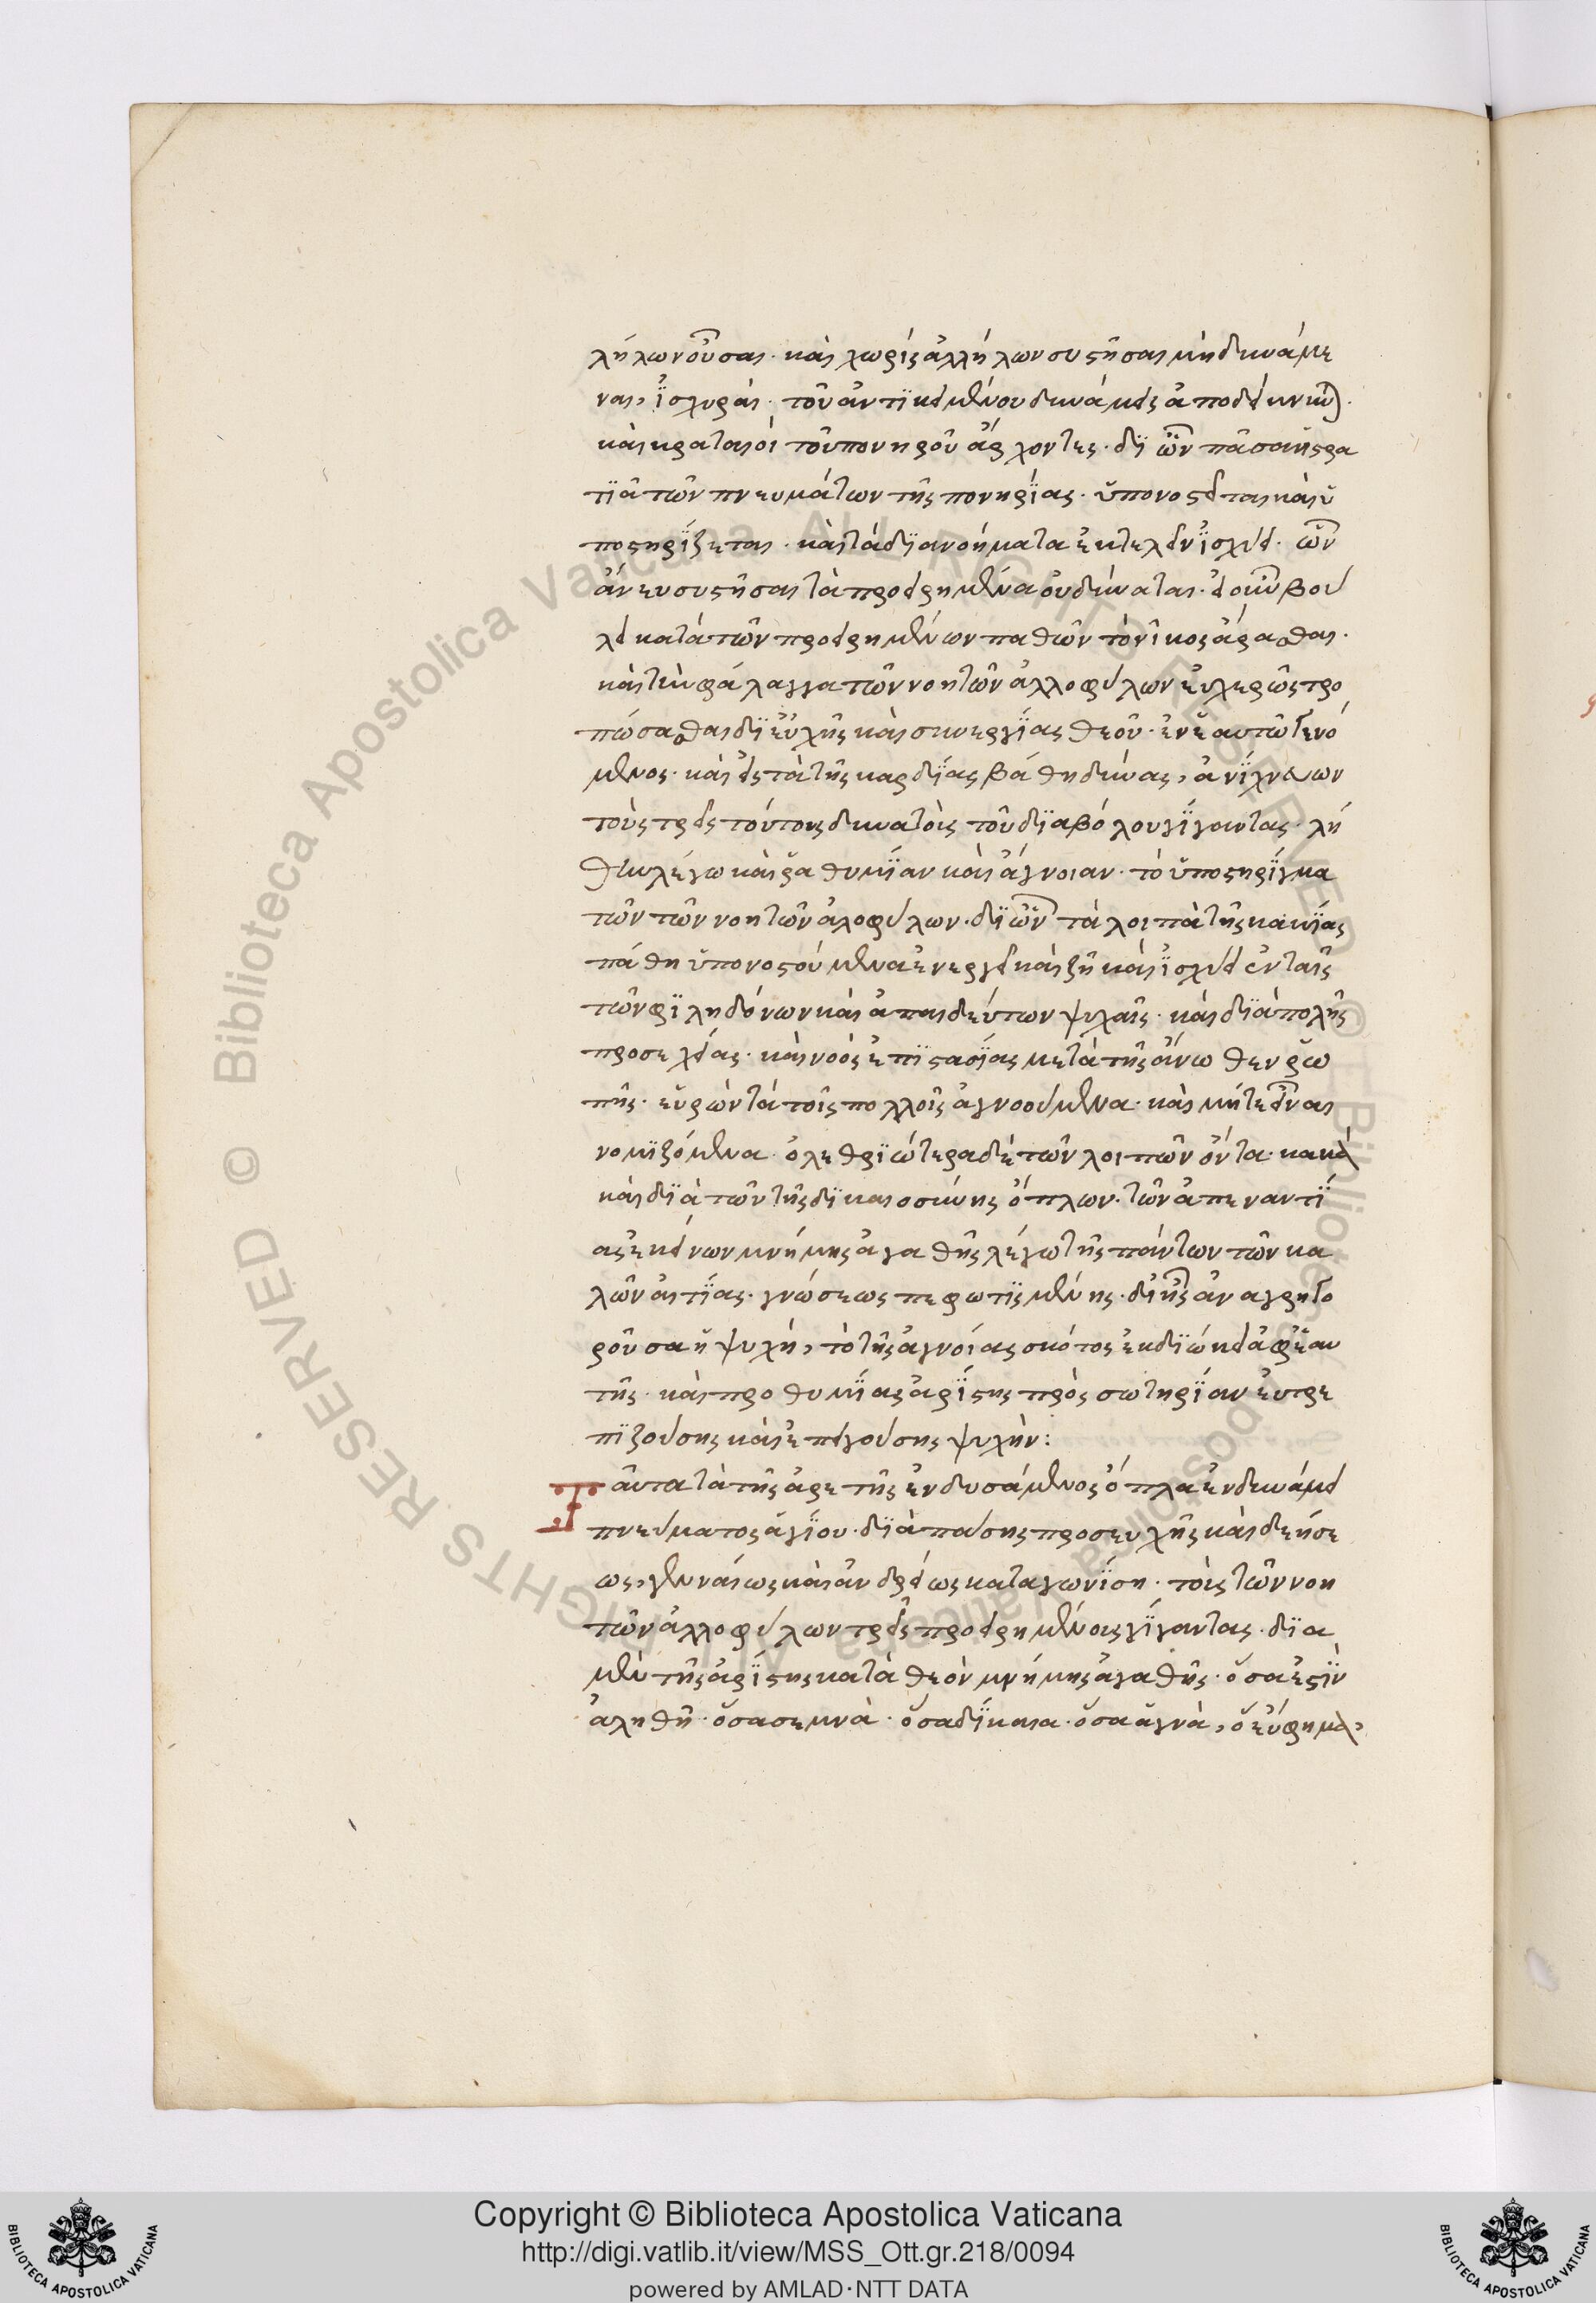 λήλων οὖσαι· καὶ χωρὶς ἀλλήλων συστῆσαι μὴ δυνάμε
ναι, ἰσχυραὶ τοῦ ἀντικειμένου δυνάμεις ἀποδείκνυνται·
καὶ κραταιοὶ τοῦ πονηροῦ ἄρχοντες· δι' ὧν πᾶσα ἡ στρα
τιὰ τῶν πνευμάτων τῆς πονηρίας· ὑπονοστεῖται καὶ ὑ
ποστηρίζεται· καὶ τὰ διανοήματα ἐκτελεῖν ἰσχύει· ὧν
ἄνευ συστῆσαι τὰ προειρημένα οὐ δύναται· εἰ οὖν βού
λει κατὰ τῶν προειρημένων παθῶν τὸ νῖκος ἄρασθαι·
καὶ τὴν φάλαγγα τῶν νοητῶν ἀλλοφύλων εὐχερῶς τρο
πώσασθαι δι' εὐχῆς καὶ συνεργίας θεοῦ· ἐν ἑαυτῷ γενό
μενος· καὶ εἰς τὰ τῆς καρδίας βάθη δύνας, ἀνίχνευων
τοὺς τρεῖς τούτους δυνατοὺς τοῦ διαβόλου γίγαντας· λή
θην λέγω καὶ ῥαθυμίαν καὶ ἄγνοιαν· τὸ ὑποστήριγμα
τῶν τῶν νοητῶν ἀλοφύλων· δι' ὧν τὰ λοιπὰ τῆς κακίας
πάθη ὑπονοστούμενα ἐνεργεῖ καὶ ζῆ καὶ ἰσχύει ἐν ταῖς
τῶν φιληδόνων καὶ ἀπαιδεύτων ψυχαῖς· καὶ διὰ πολῆς
προσεχείας· καὶ νοὸς ἐπιστασίας μετὰ τῆς ἄνωθεν ῥω
πῆς· εὑρὼν τὰ τοῖς πολλοῖς ἀγνοούμενα· καὶ μήτε εἶναι
νομιζόμενα· ὀλεθριώτερα δὲ τῶν λοιπῶν ὄντα· κακὰ
καὶ διὰ τῶν τῆς δικαιοσύνης ὅπλων· τῶν ἀπεναντί
ας ἐκείνων μνήμης ἀγαθῆς λέγω τῆς πάντων τῶν κα
λῶν αἰτίας· γνώσεως πεφωτισμένης· δι' ἧς ἀναγρηγο
ροῦσα ἡ ψυχὴ, τὸ τῆς ἀγνοίας σκότος ἐκδιώκει ἀφ' ἑαυ
τῆς· καὶ προθυμίας ἀρίστης πρὸς σωτηρίαν εὐτρε
πιζούσης καὶ ἐπειγούσης ψυχὴν:
Ταῦτα τὰ τῆς ἀρετῆς ἐνδυσάμενος ὅπλα ἐν δυνάμει
πνεύματος ἁγίου· διὰ πάσης προσευχῆς καὶ δεήσε
ως, γενναίως καὶ ἀνδρείως καταγωνίση· τοὺς τῶν νοη
τῶν ἀλλοφύλων τρεῖς προειρημένους γίγαντας· δια
μὲν τῆς ἀρίστης κατὰ θεὸν μνήμης ἀγαθῆς· ὅσα ἐστὶν
ἀληθῆ· ὅσα σεμνὰ· ὅσα δίκαια· ὅσα ἁγνὰ, ὅ εὔφημα,
Copyright © Biblioteca Apostolica Vaticana
http://digi.vatlib.it/view/MSS_Ott.gr.218/0094
powered by AMLAD·NTT DATA